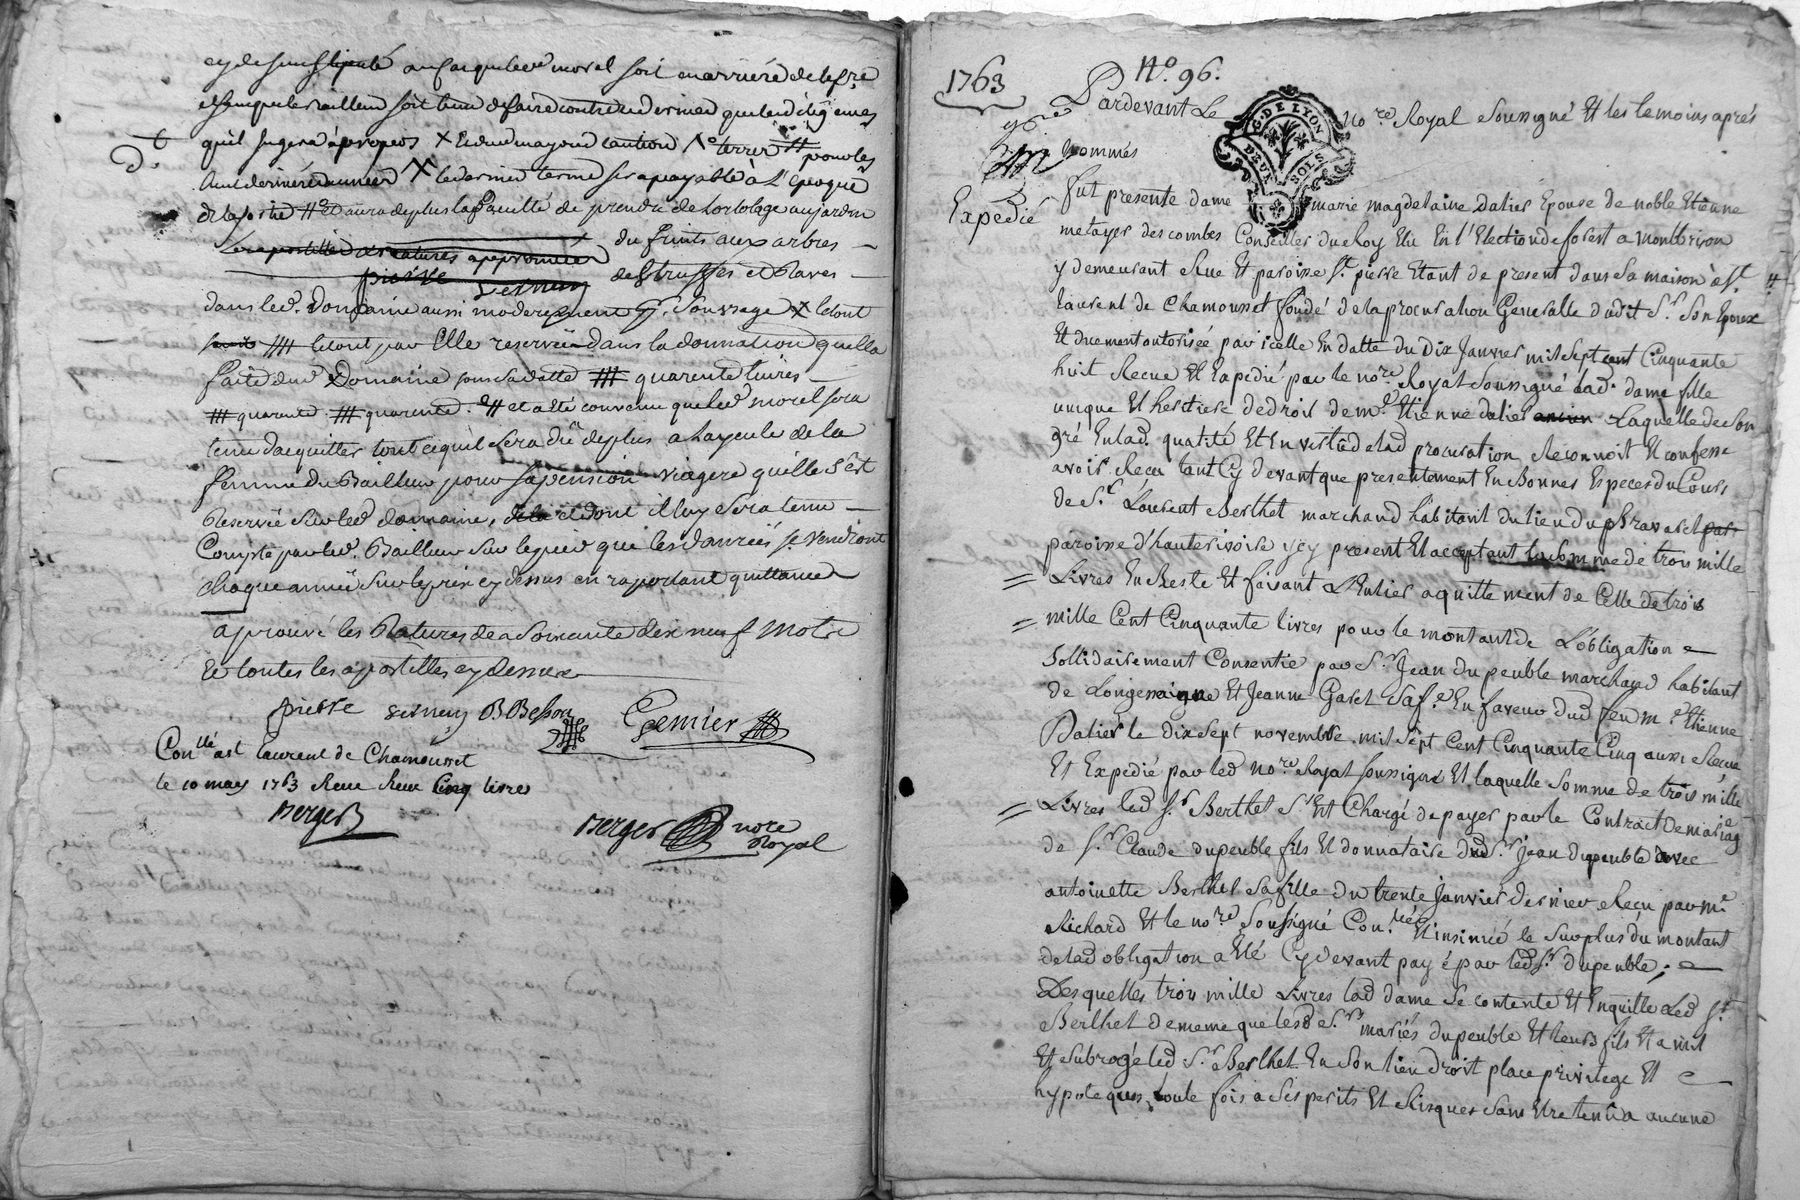 soit en arrière de
qu'il jugera àpropos X
aux derniéres années X le dernier terme sera payable à L'epoque
de la sortie # Et aura deplus la faculté de prendre de Lortolage au jardin
du fruits aux arbres —
pierre verneuy
dans led. Domaine aussi moderement
par Elle reservée dans la donnation quella
faite dud Domaine sous sa datte # quarente livres —
# quarente # quarente. # et a été convenu que led morel sera
tenu dacquitter tout cequil sera dû deplus a layeule de la
femme du Bailleur pour sa pension viagere quelle s'est
Reservée sur led domaine, et dont il luy sera tenu —
Compte par led. Bailleur sur le pied que les danrées se vendront
chaque année sur le prix cy dessus en raportant quittance
aprouvé les Ratures de a Soixante dix neuf Mots
et toutes les apostilles cy dessus
pierre verneuy BBesson Gemier
Conllé a St laurent de Chamousset
le 10 may 1763 Reçu Cinq livres
Berger
Berger nore
Royal
1763 No. 96.
Pardevant Le nore Royal Soussigné Et les temoins aprés
G. DE LYON
DEUX SOLS
nommés
Expedié
fut presente dame marie magdelaine Dalier Epouse de noble Etienne
metayer descombes Conseiller du Roy Elu En l'Election de forest a montbrison
y demeurant Rue Et paroisse St. pierre Etant de present dans Sa maison à St. #
laurent de Chamousset fondé de la procuration Generalle dudit Sr. Son Epoux
Et duement autorisée par icelle En datte du Dix Janvier mil sept cent Cinquante
huit Recue Et Expedié par le nore. Royal Soussigné lad. dame fille
unique Et heritiere de droit de me. Etienne dalier Laquelle de Son
gré En lad. qualité Et En vertu de lad procuration Reconnoit Et confesse
avoir Recu tant Cy devant que presentement En Bonnes Especes du Cours
de Sr. Laurent Berthet marchand habitant du lieu du phravaret
paroisse d'hauterivoire ycy present Et acceptant la Somme de trois mille
= Livres En Reste Et faisant L'Entier aquittement de Celle de trois
= mille Cent Cinquante livres pour le montant de L'obligation
Sollidairement Consentie par Sr. Jean dupeuble marchand habitant
de Longesaigne Et Jeanne Garel Saf.e En faveur dud feu me Etienne
Dalier le dix sept novembre mil Sept Cent Cinquante Cinq aussi Recue
Et Expedié par led nore. Royal Soussigné Et laquelle Somme de trois mille
= Livres led Sr. Berthet S'Est Chargé de payer par le Contract de mariage
de Sr. Claude dupeuble fils Et donnataire dud Sr. Jean dupeuble avec
antoinette Berthet Sa fille du trente Janvier dernier Reçu par me.
Richard Et le nore Soussigné Con.llé Et insinué le Surplus du montant
de lad obligation a Eté Cy devant payé par led Sr. dupeuble, —
Desquelles trois mille Livres lad dame Se contente Et En quitte Led Sr.
Berthet de meme que lesd Srs mariés dupeuble Et leurs fils Et a mis
Et Subrogé led Sr. Berthet En Son lieu droit place privilege Et —
hypoteques, toute fois a Ses perils Et Risques Sans Etre tenûe a aucune